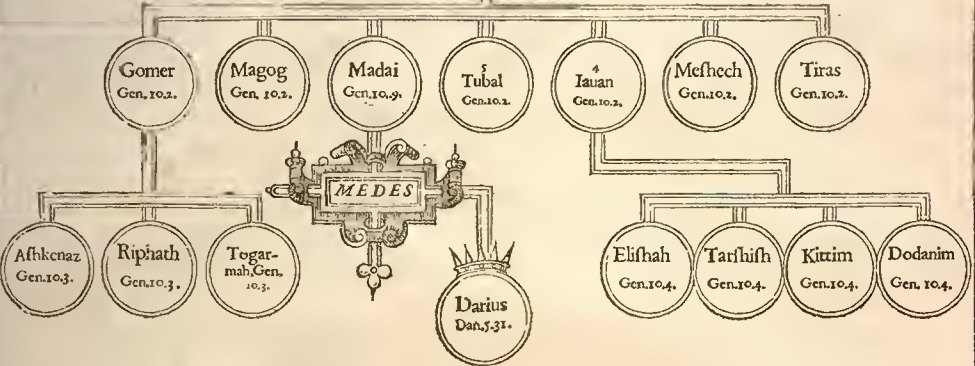 Gomer
Gen. 10.2.
Magog
Gen. 10.2.
Madai
Gen.10,.9.
5
Tubal
Gen.10.2.
4
Iauan
Gen.10.2.
Meſhech
Gen.10.2.
Tiras
Gen.10.2.
MEDES
Aſhkenaz
Gen.10.3.
Riphath
Gen.10.3.
Togar-
mah,Gen.
10.3.
Darius
Dan.5.31.
Eliſhah
Gen.10.4.
Tarſhiſh
Gen.10.4.
Kittim
Gen.10.4.
Dodanim
Gen. 10.4.